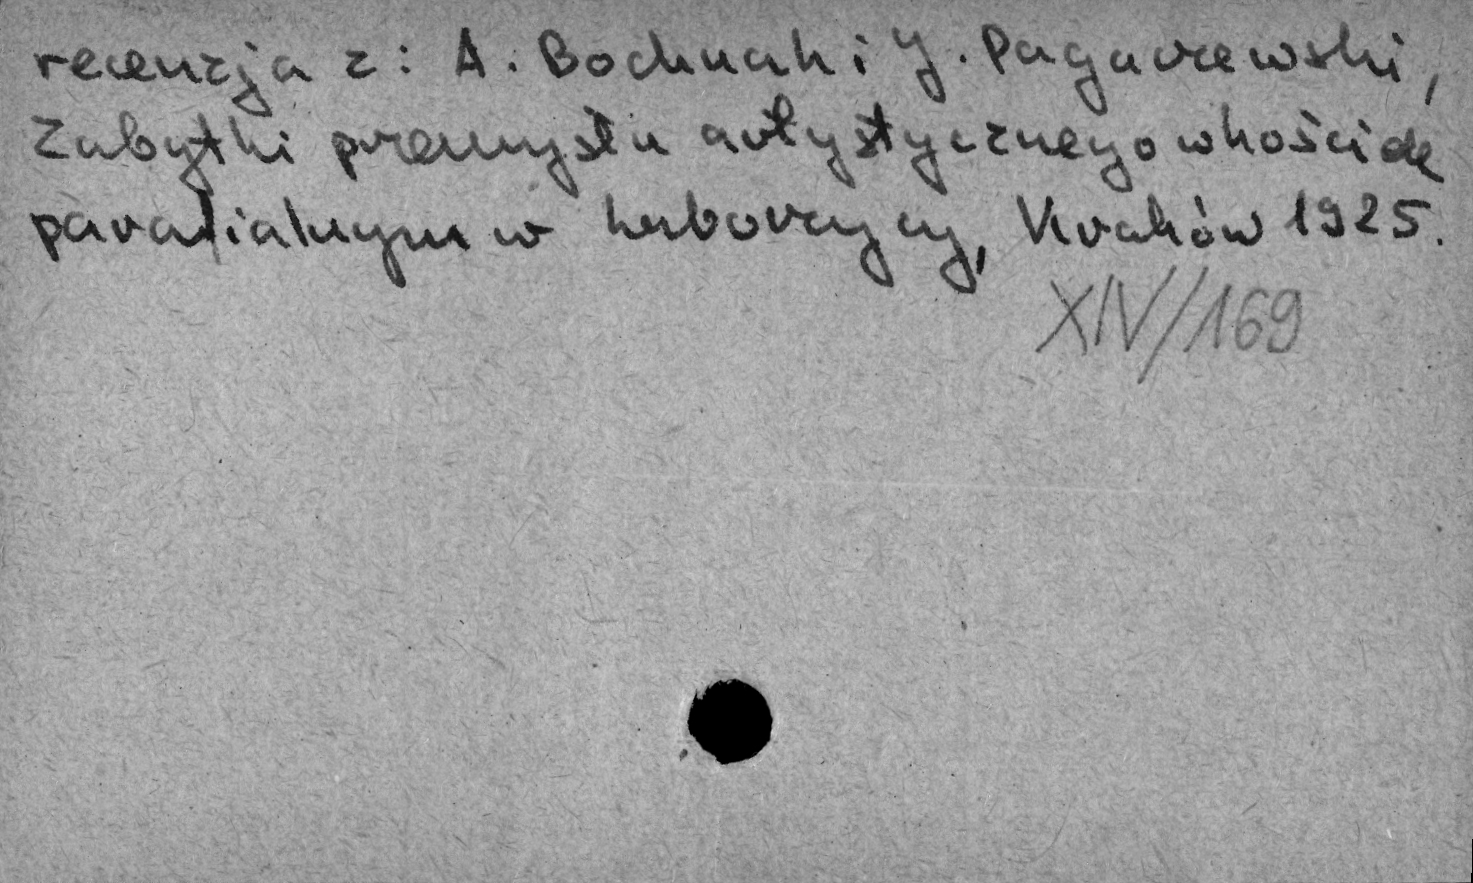 recenzja z: A. Bochnak i J. Pagaczewski,
Zabytki przemysłu artystycznego w kościele
parafialnym w
Kraków 1925.
XIV/169